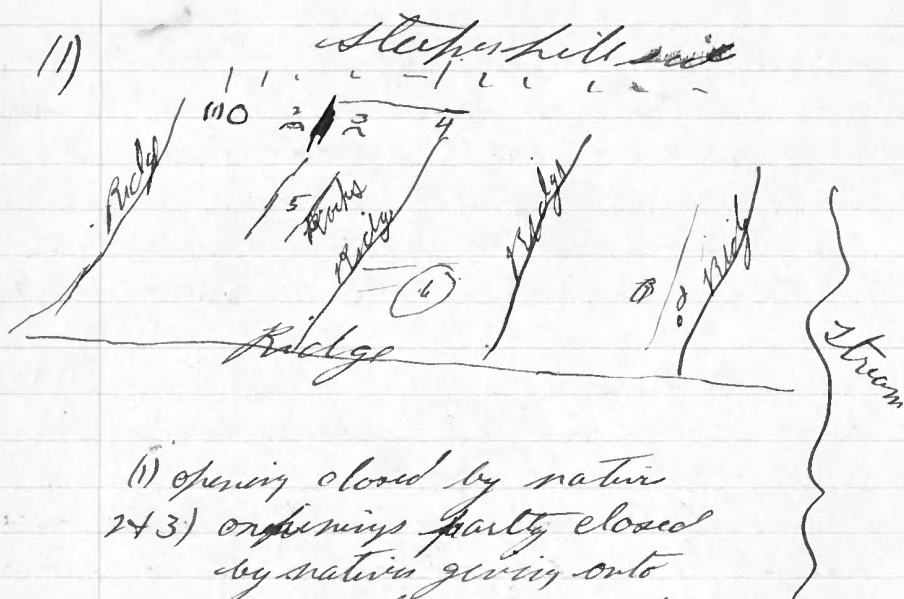 (1)
steeper hill
(1) 0 2 3 4
Ridge
5 Rocks
Ridge
6
Ridge
8
Ridge
Ridge
Stream
(1) opening closed by natives
2 & 3) openings partly closed
by natives giving onto